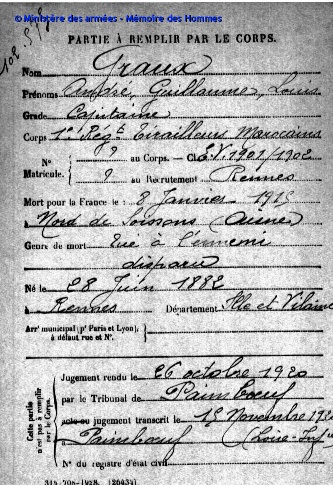 © Ministère des armées - Mémoire des Hommes
PARTIE À REMPLIR PAR LE CORPS.
Nom Graux
Prénoms André, Guillaume, Louis
Grade Capitaine
Corps 1er Régt Tirailleurs Marocains
N° ? au Corps. — Cl. E.V. 1901/1902
Matricule. ? au Recrutement Rennes
Mort pour la France le : 8 Janvier 1915
à Nord de Soissons (Aisne)
Genre de mort Tué à l'ennemi
disparu
Né le 28 Juin 1882
à Rennes Département Ille et Vilaine
Arrt municipal (pr Paris et Lyon), à défaut rue et N°.
Cette partie n'est pas à remplir par le Corps.
Jugement rendu le 26 octobre 1920
par le Tribunal de Paimboeuf
acte ou jugement transcrit le 15 Novembre 1920
à Paimboeuf (Loire-Infre)
N° du registre d'état civil